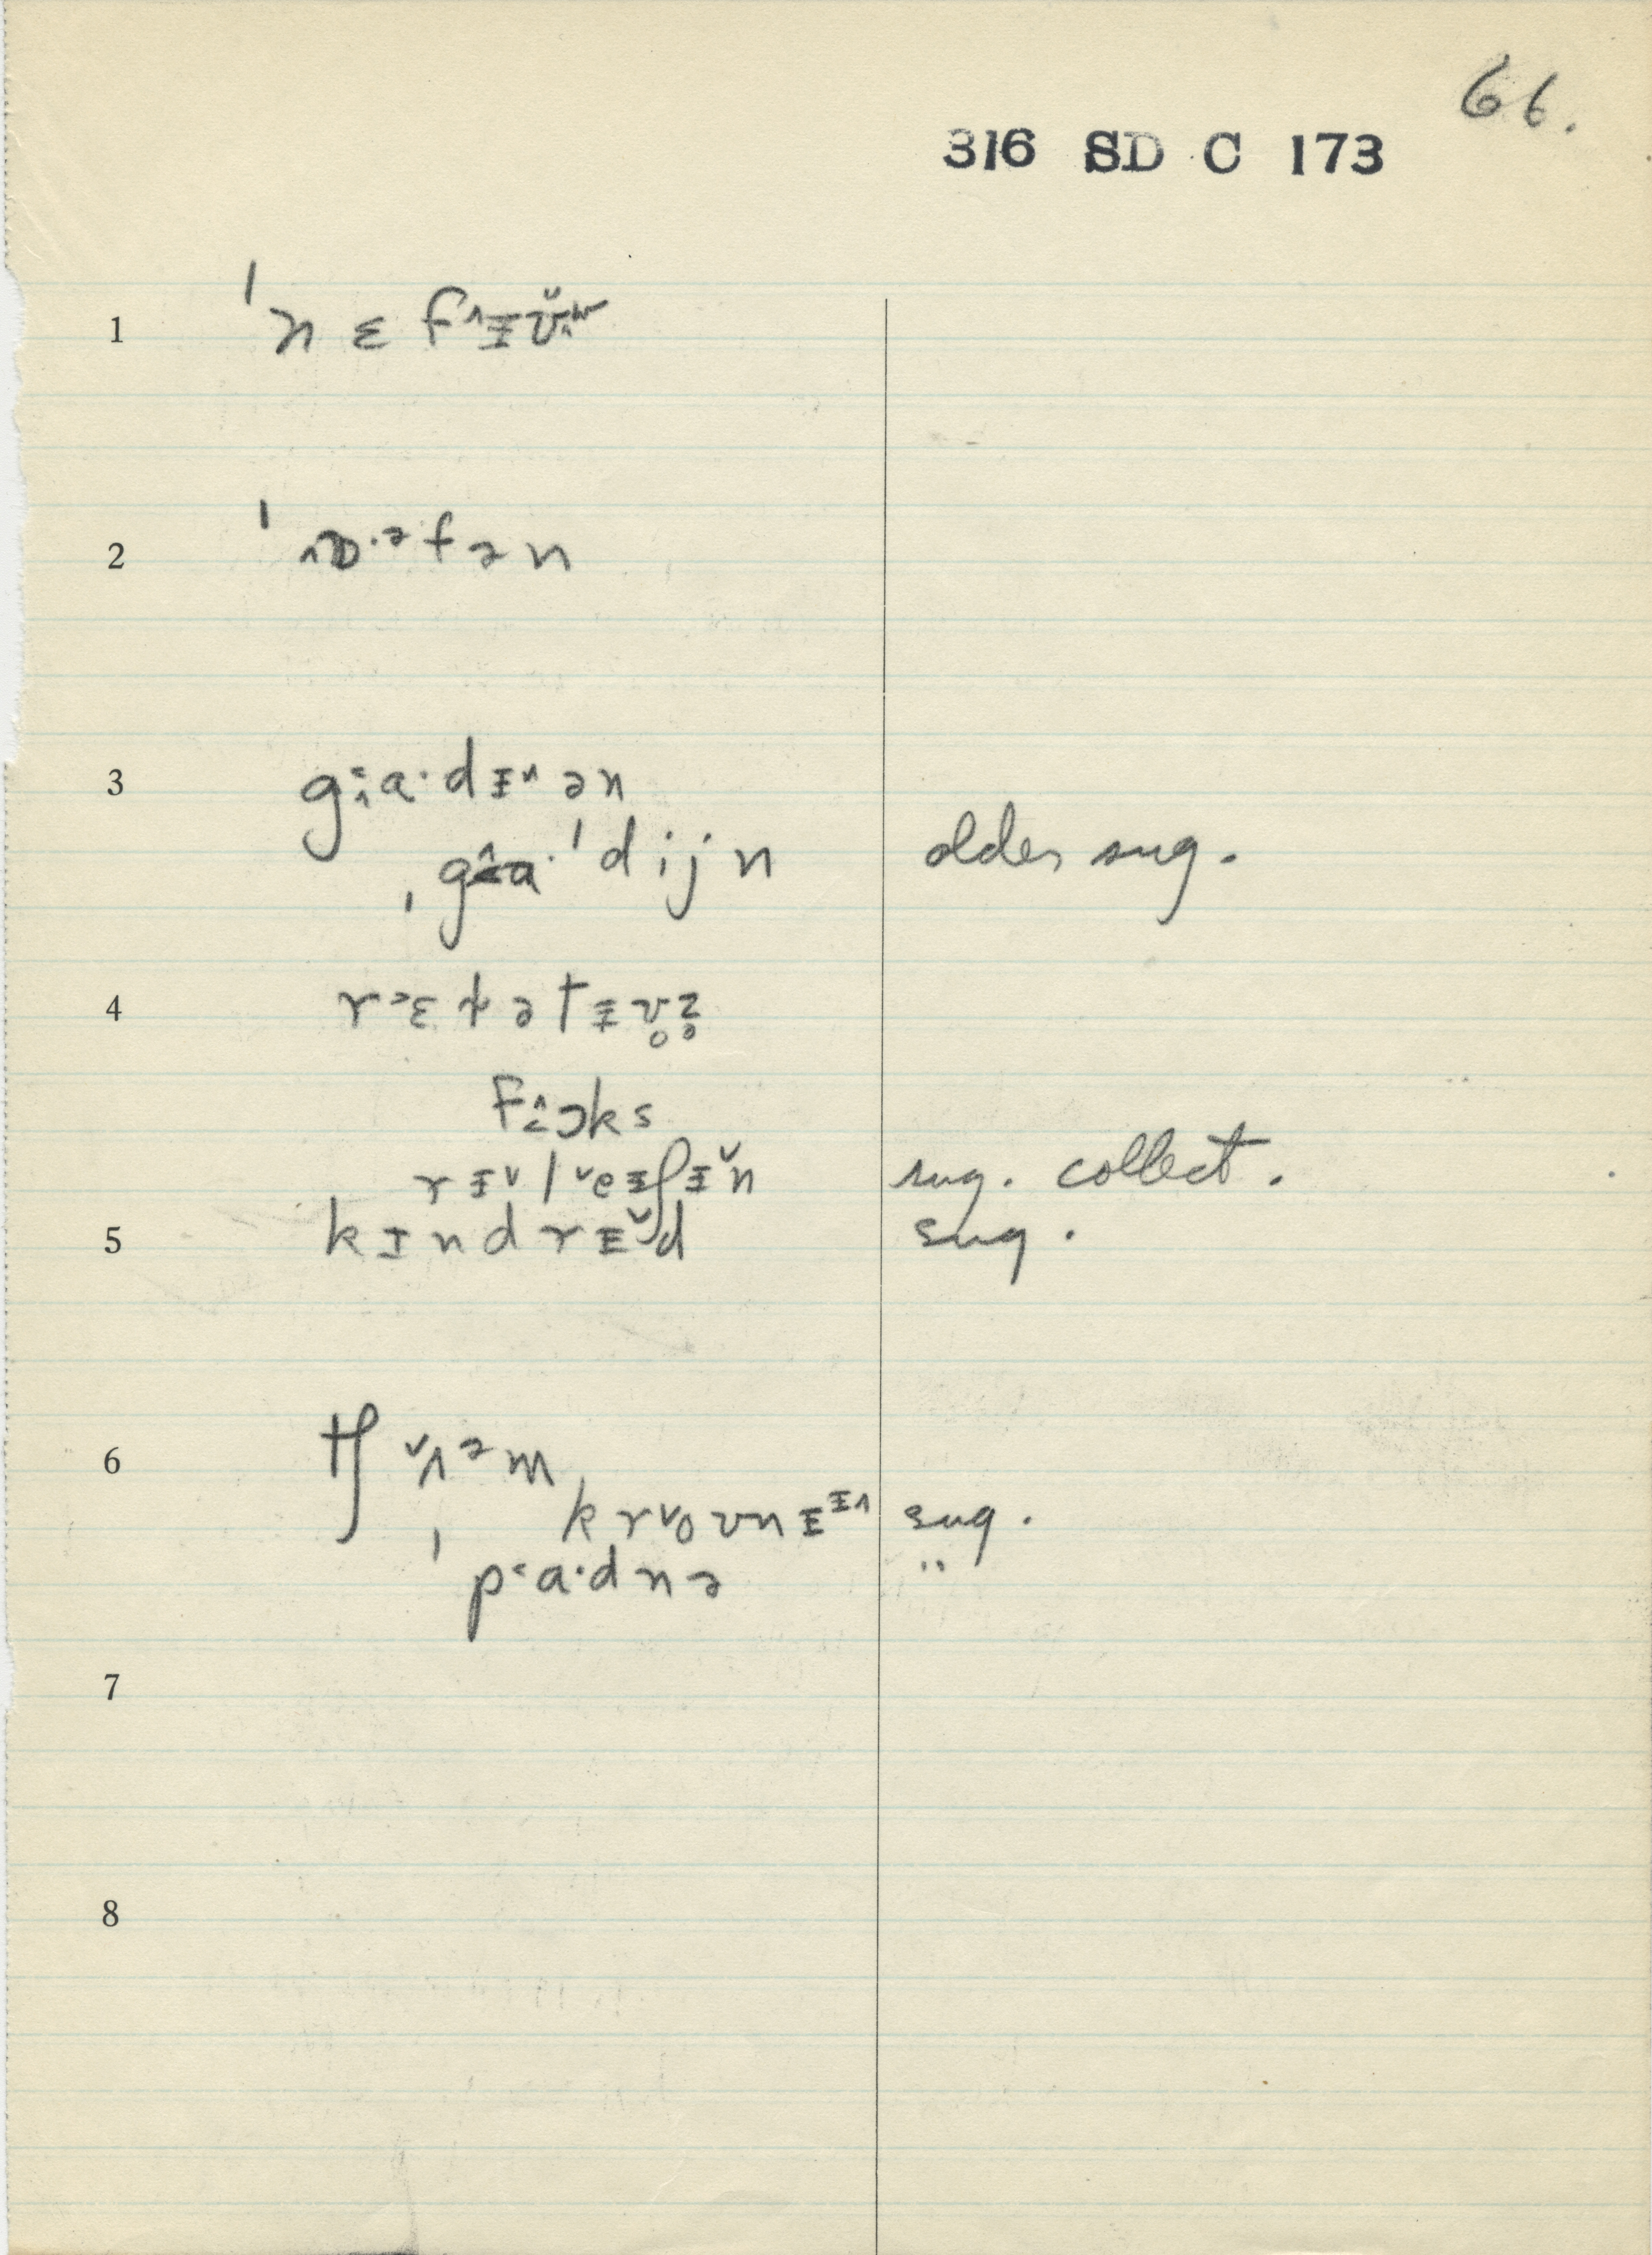 66.
316 SD C 173
1 ˈnɛfɪv
2 ˈɒ·ᵊfən
3 ga·dɪ˄ən
ˌga·ˈdijn older sug.
4 rɛɫətɪv̥z̥
fɔks
rɪ˅l˅eɪʃɪ˅n sug. collect.
5 kɪndrɪ˅d sug.
6 tʃ˅ʌᵊm
kr˅oʊnɪᶦ˄ sug.
ˈp˂a·dnə "
7
8